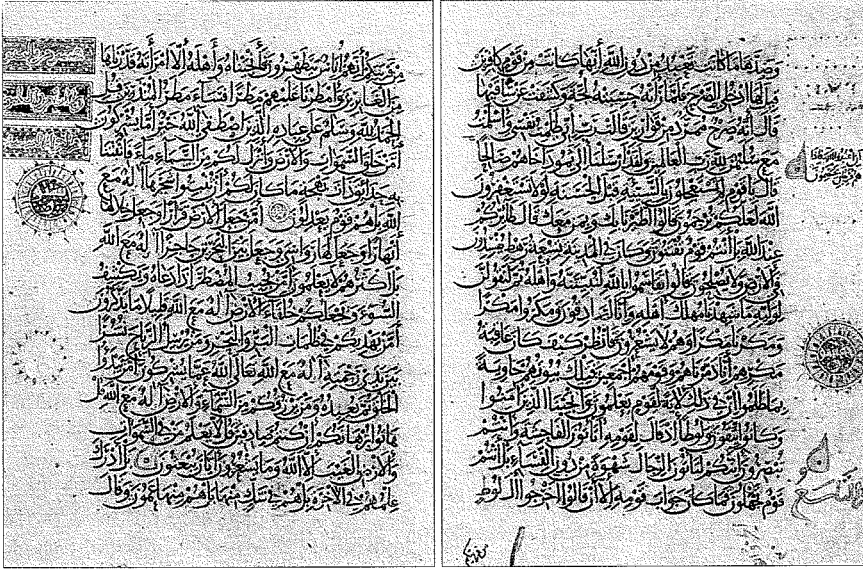 وصدها ما كانت تعبد من دون الله إنها كانت من قوم كافرين
قيل لها ادخلي الصرح فلما رأته حسبته لجة وكشفت عن ساقيها
قال إنه صرح ممرد من قوارير قالت رب إني ظلمت نفسي وأسلمت
مع سليمن لله رب العالمين ولقد أرسلنا إلى ثمود أخاهم صالحا
أن اعبدوا الله فإذا
هم فريقان يختصمون
قال يا قوم لم تستعجلون بالسيئة قبل الحسنة لولا تستغفرون
الله لعلكم ترحمون قالوا اطيرنا بك وبمن معك قال طائركم
عند الله بل أنتم قوم تفتنون وكان في المدينة تسعة رهط يفسدون
في الأرض ولا يصلحون قالوا تقاسموا بالله لنبيتنه وأهله ثم لنقولن
لوليه ما شهدنا مهلك أهله وإنا لصادقون ومكروا مكرا
ومكرنا مكرا وهم لا يشعرون فانظر كيف كان عاقبة
مكرهم أنا دمرناهم وقومهم أجمعين فتلك بيوتهم خاوية
بما ظلموا إن في ذلك لآية لقوم يعلمون وأنجينا الذين آمنوا
وكانوا يتقون ولوطا إذ قال لقومه أتأتون الفاحشة وأنتم
تبصرون أئنكم لتأتون الرجال شهوة من دون النساء بل أنتم
قوم تجهلون فما كان جواب قومه إلا أن قالوا أخرجوا آل لوط
من قريتكم إنهم أناس يتطهرون فأنجيناه وأهله إلا امرأته قدرناها
من الغابرين وأمطرنا عليهم مطرا فساء مطر المنذرين قل
الحمد لله وسلام على عباده الذين اصطفى آلله خير أما تشركون
أمن خلق السموات والأرض وأنزل لكم من السماء ماء فأنبتنا
به حدائق ذات بهجة ما كان لكم أن تنبتوا شجرها أإله مع
الله بل هم قوم يعدلون أمن جعل الأرض قرارا وجعل خلالها
أنهارا وجعل لها رواسي وجعل بين البحرين حاجزا أإله مع الله
بل أكثرهم لا يعلمون أمن يجيب المضطر إذا دعاه ويكشف
السوء ويجعلكم خلفاء الأرض أإله مع الله قليلا ما تذكرون
أمن يهديكم في ظلمات البر والبحر ومن يرسل الرياح بشرا
بين يدي رحمته أإله مع الله تعالى الله عما يشركون أمن يبدؤا
الخلق ثم يعيده ومن يرزقكم من السماء والأرض أإله مع الله قل
هاتوا برهانكم إن كنتم صادقين قل لا يعلم من في السموات
والأرض الغيب إلا الله وما يشعرون أيان يبعثون بل ادارك
علمهم في الآخرة بل هم في شك منها بل هم منها عمون وقال